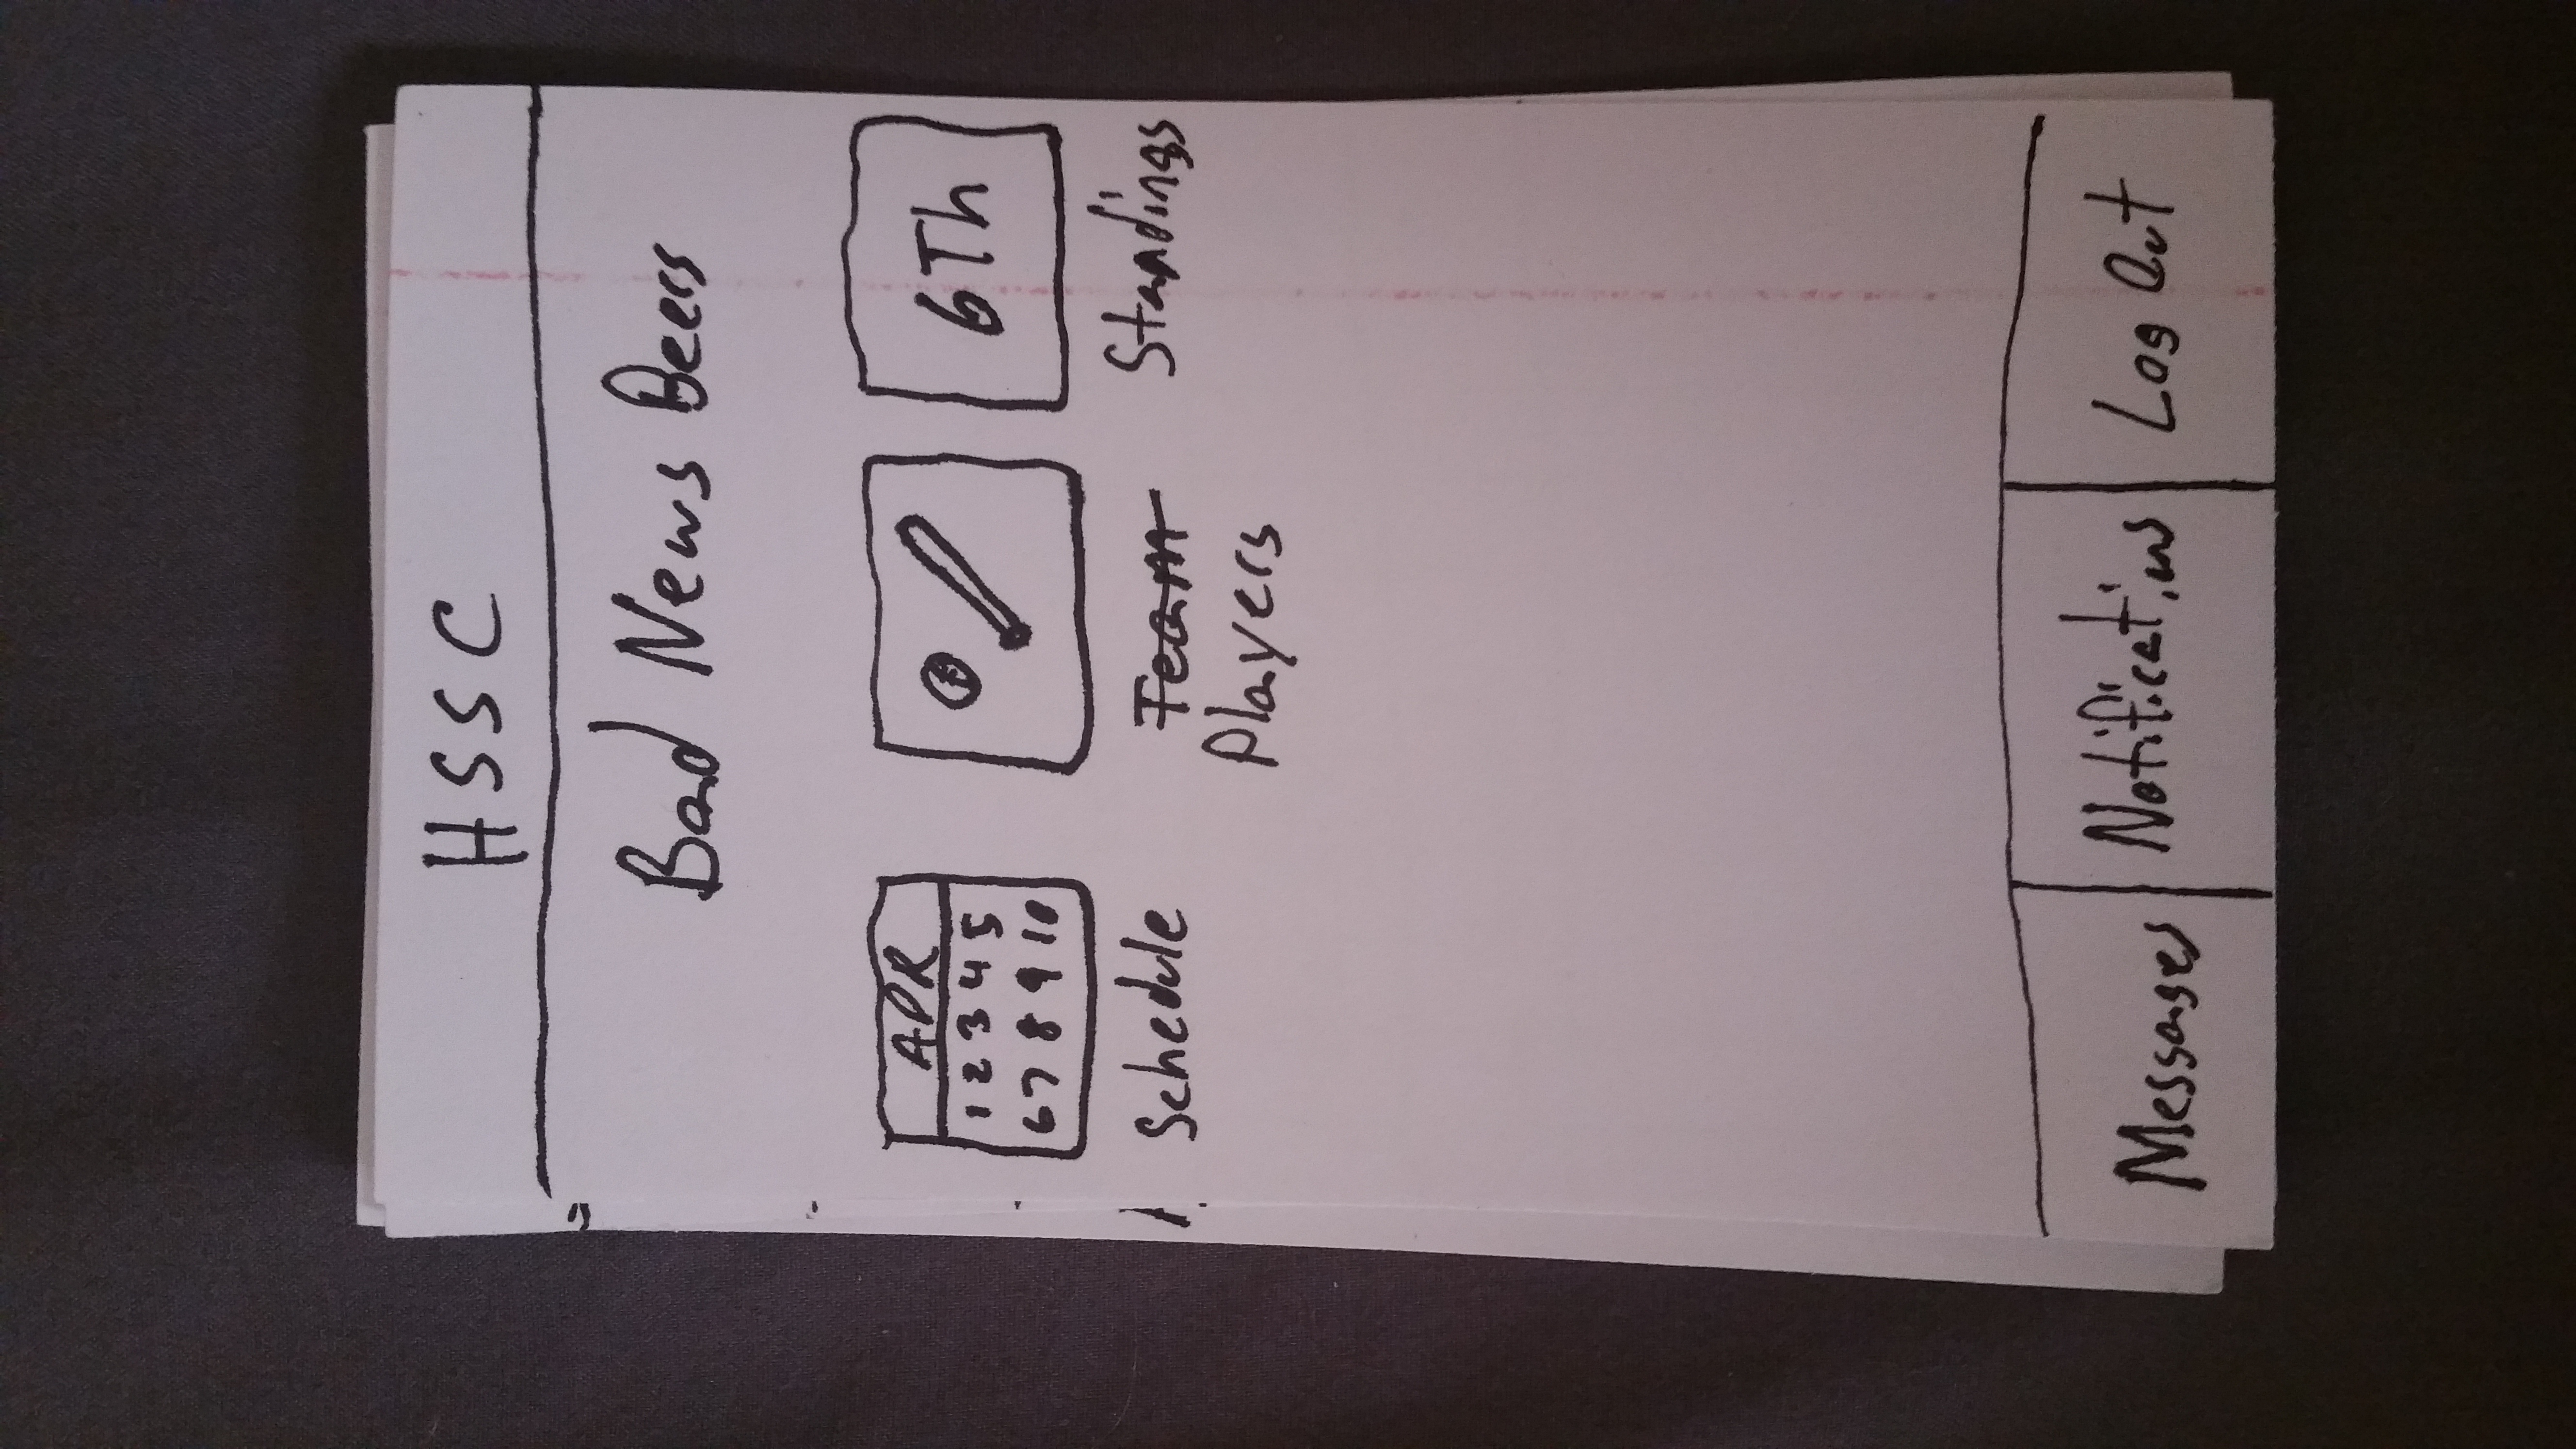 HSSC
Bad News Beers
APR
1 2 3 4 5
6 7 8 9 10
6Th
Schedule
Team
Players
Standings
Messages
Notifications
Log Out